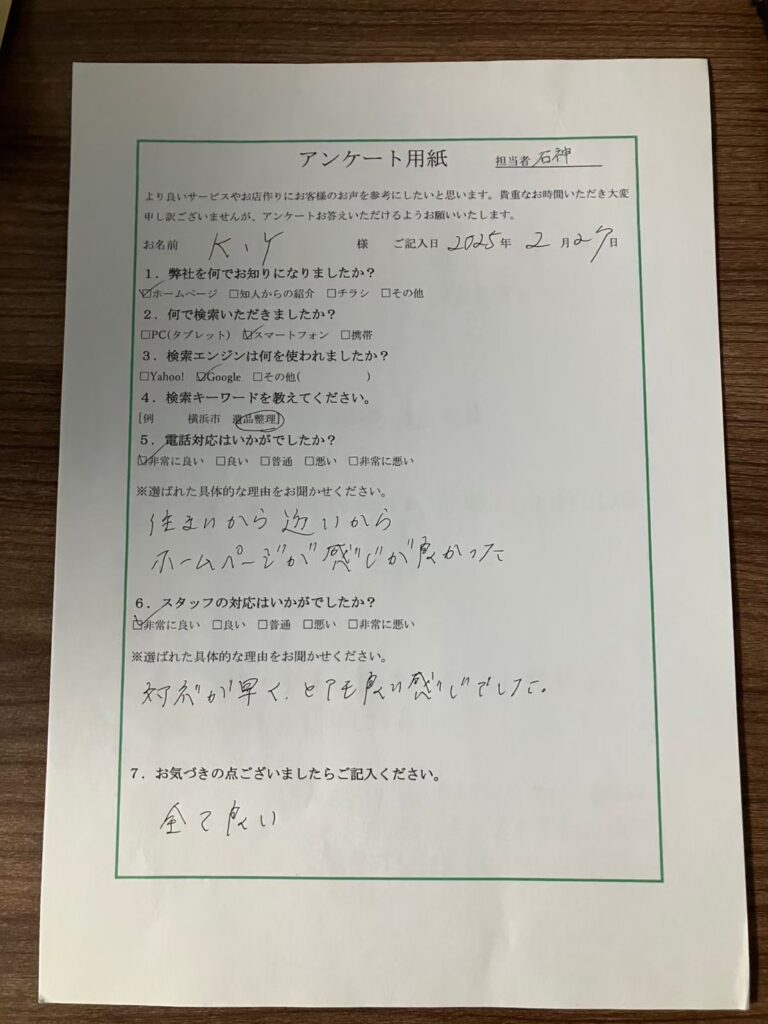 アンケート用紙 担当者 石神
より良いサービスやお店作りにお客様のお声を参考にしたいと思います。貴重なお時間いただき大変
申し訳ございませんが、アンケートお答えいただけるようお願いいたします。
お名前 K、Y 様 ご記入日 2025年 2月27日
1．弊社を何でお知りになりましたか？
☑ホームページ □知人からの紹介 □チラシ □その他
2．何で検索いただきましたか？
□PC(タブレット) ☑スマートフォン □携帯
3．検索エンジンは何を使われましたか？
□Yahoo! ☑Google □その他( )
4．検索キーワードを教えてください。
[例 横浜市 遺品整理]
5．電話対応はいかがでしたか？
☑非常に良い □良い □普通 □悪い □非常に悪い
※選ばれた具体的な理由をお聞かせください。
住まいから近いから
ホームページが感じが良かった
6．スタッフの対応はいかがでしたか？
☑非常に良い □良い □普通 □悪い □非常に悪い
※選ばれた具体的な理由をお聞かせください。
対応が早く、とても良い感じでした。
7．お気づきの点ございましたらご記入ください。
全て良い